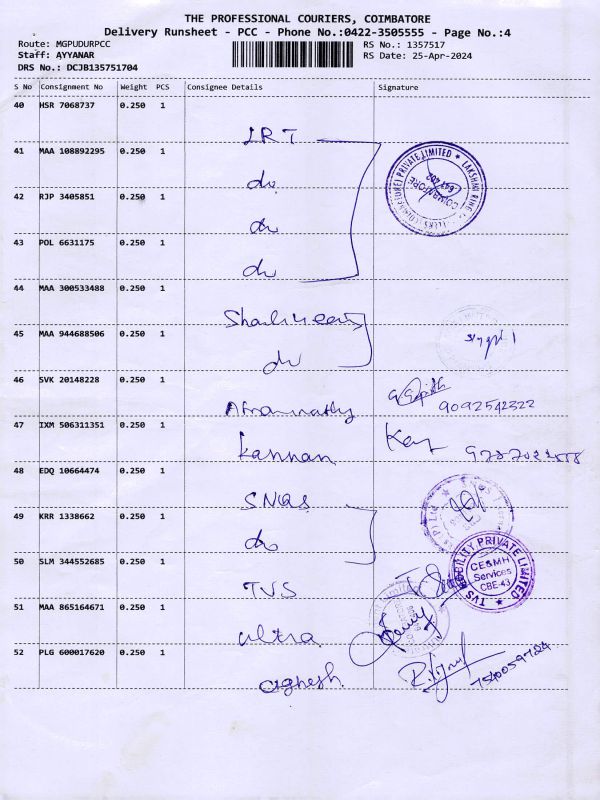 THE PROFESSIONAL COURIERS, COIMBATORE
Delivery Runsheet - PCC - Phone No.:0422-3505555 - Page No.:4
Route: MGPUDURPCC
Staff: AYYANAR
DRS No.: DCJB135751704
RS No.: 1357517
RS Date: 25-Apr-2024
S No Consignment No Weight PCS Consignee Details Signature
40 HSR 7068737 0.250 1
LRT
41 MAA 108892295 0.250 1
do
42 RJP 3405851 0.250 1
do
43 POL 6631175 0.250 1
do
44 MAA 300533488 0.250 1
45 MAA 944688506 0.250 1
do
46 SVK 20148228 0.250 1
9092542322
47 IXM 506311351 0.250 1
Kannan
48 EDQ 10664474 0.250 1
SNQS
49 KRR 1338662 0.250 1
do
50 SLM 344552685 0.250 1
TVS
TVS MOBILITY PRIVATE LIMITED
CE&MH
Services
CBE-43
51 MAA 865164671 0.250 1
ultra
52 PLG 600017620 0.250 1